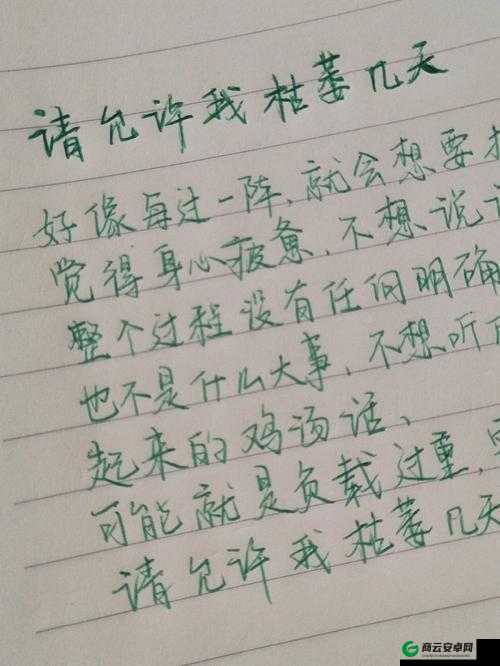 请允许我枯萎几天
好像每过一阵、就会想要
觉得身心疲惫、不想说
整个过程没有任何明确
也不是什么大事、不想听
起来的鸡汤话、
可能就是负载过重、
请允许我枯萎几天
商云安卓网